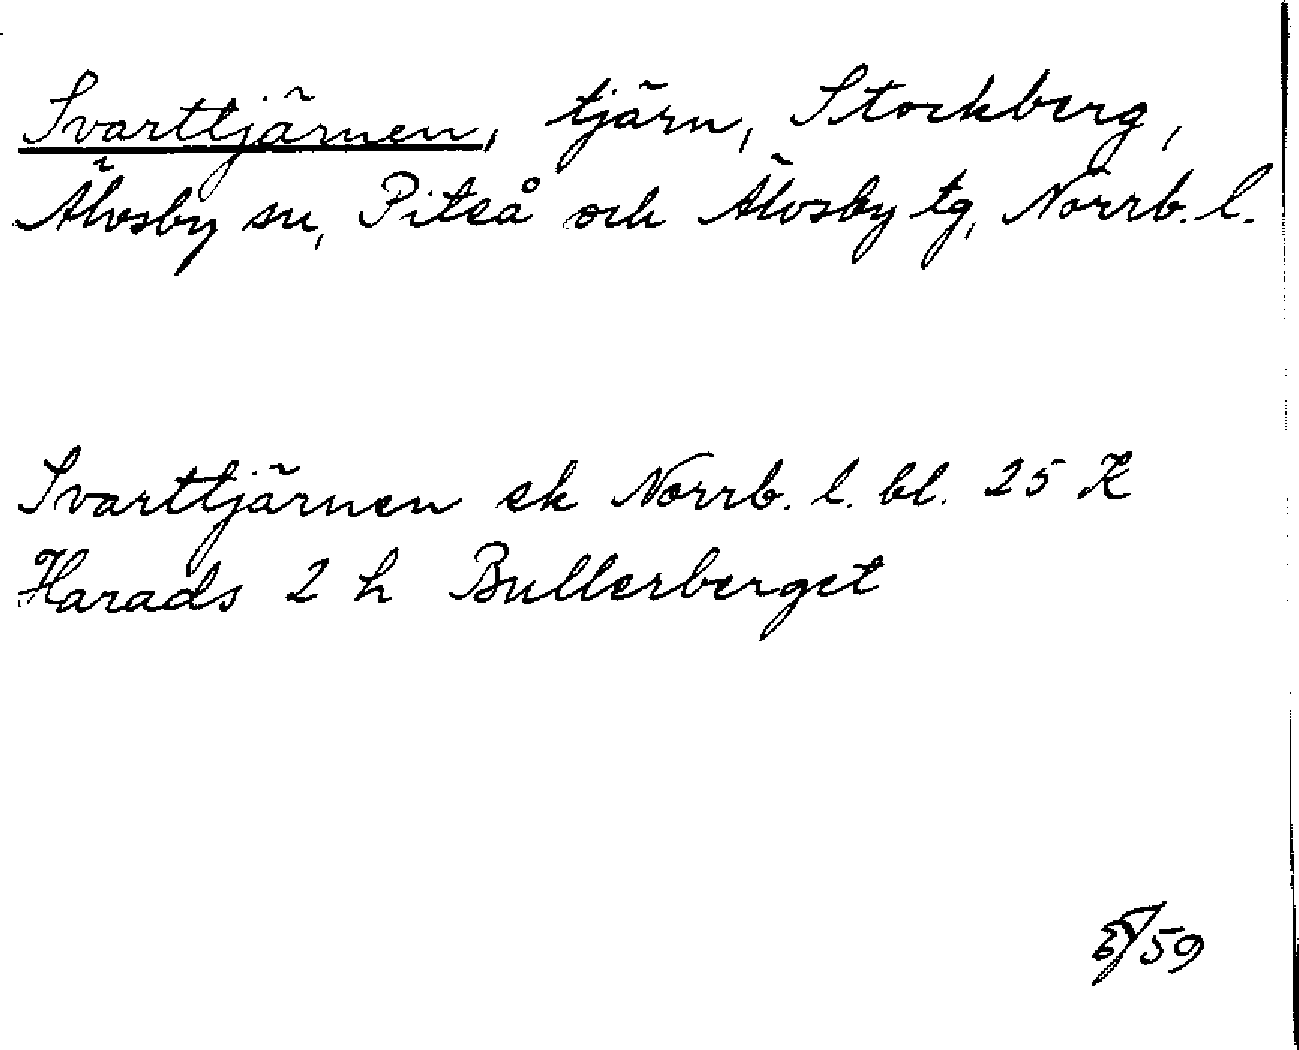 Svarttjärnen, tjärn, Stockberg,
Älvsby sn, Piteå och Älvsby tg, Norrb. l.
Svarttjärnen ek Norrb. l. bl. 25 K
Harads 2 h Bullerberget
59